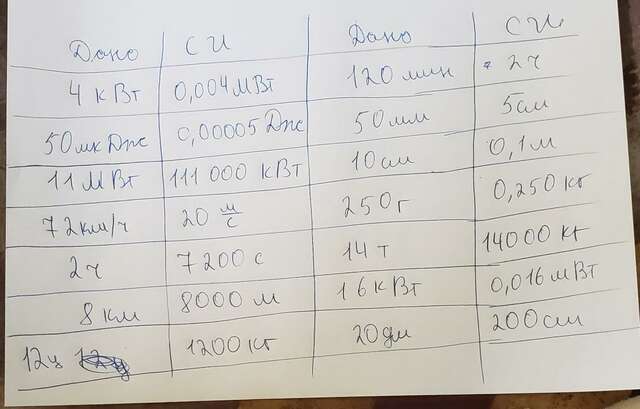 Дано СИ Дано СИ
4 кВт 0,004 МВт 120 мин 2 ч
50 мкДж 0,00005 Дж 50 мм 5 см
11 МВт 111 000 кВт 10 см 0,1 м
72 км/ч 20 м/с 250 г 0,250 кг
2 ч 7200 с 14 т 14000 кг
8 км 8000 м 16 кВт 0,016 МВт
12ц 1200 кг 20 дм 200 см